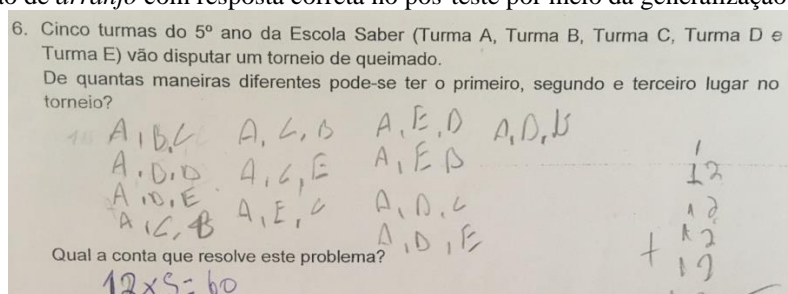 o de arranjo com resposta correta no pós-teste por meio da generalização
6. Cinco turmas do 5º ano da Escola Saber (Turma A, Turma B, Turma C, Turma D e
Turma E) vão disputar um torneio de queimado.
De quantas maneiras diferentes pode-se ter o primeiro, segundo e terceiro lugar no
torneio?
A, B, C A, C, B A, E, D A, D, B
A, D, D A, C, E A, E B
A, D, E A, E, C A, D, C
A, C, B A, D, E
1
12
12
12
+ 12
Qual a conta que resolve este problema?
12 x 5 = 60